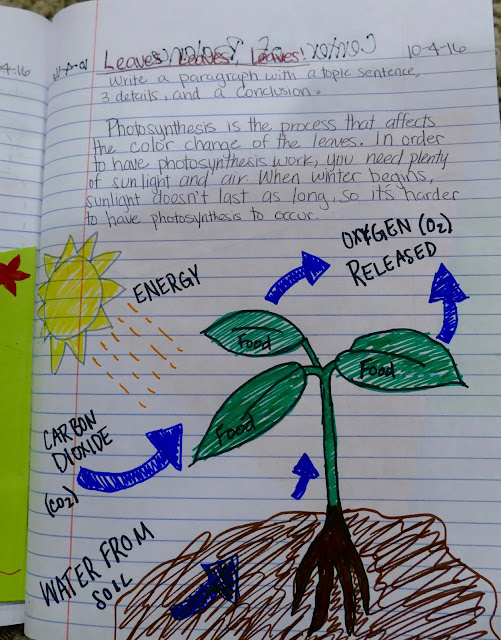 4-16
Leaves, Leaves, Leaves! 10-4-16
Write a paragraph with a topic sentence,
3 details, and a conclusion.
Photosynthesis is the process that affects
the color change of the leaves. In order
to have photosynthesis work, you need plenty
of sunlight and air. When winter begins,
sunlight doesn't last as long, so it's harder
to have photosynthesis to occur.
OXYGEN (O2)
RELEASED
ENERGY
Food
Food
Food
CARBON
DIOXIDE
(CO2)
WATER FROM
SOIL